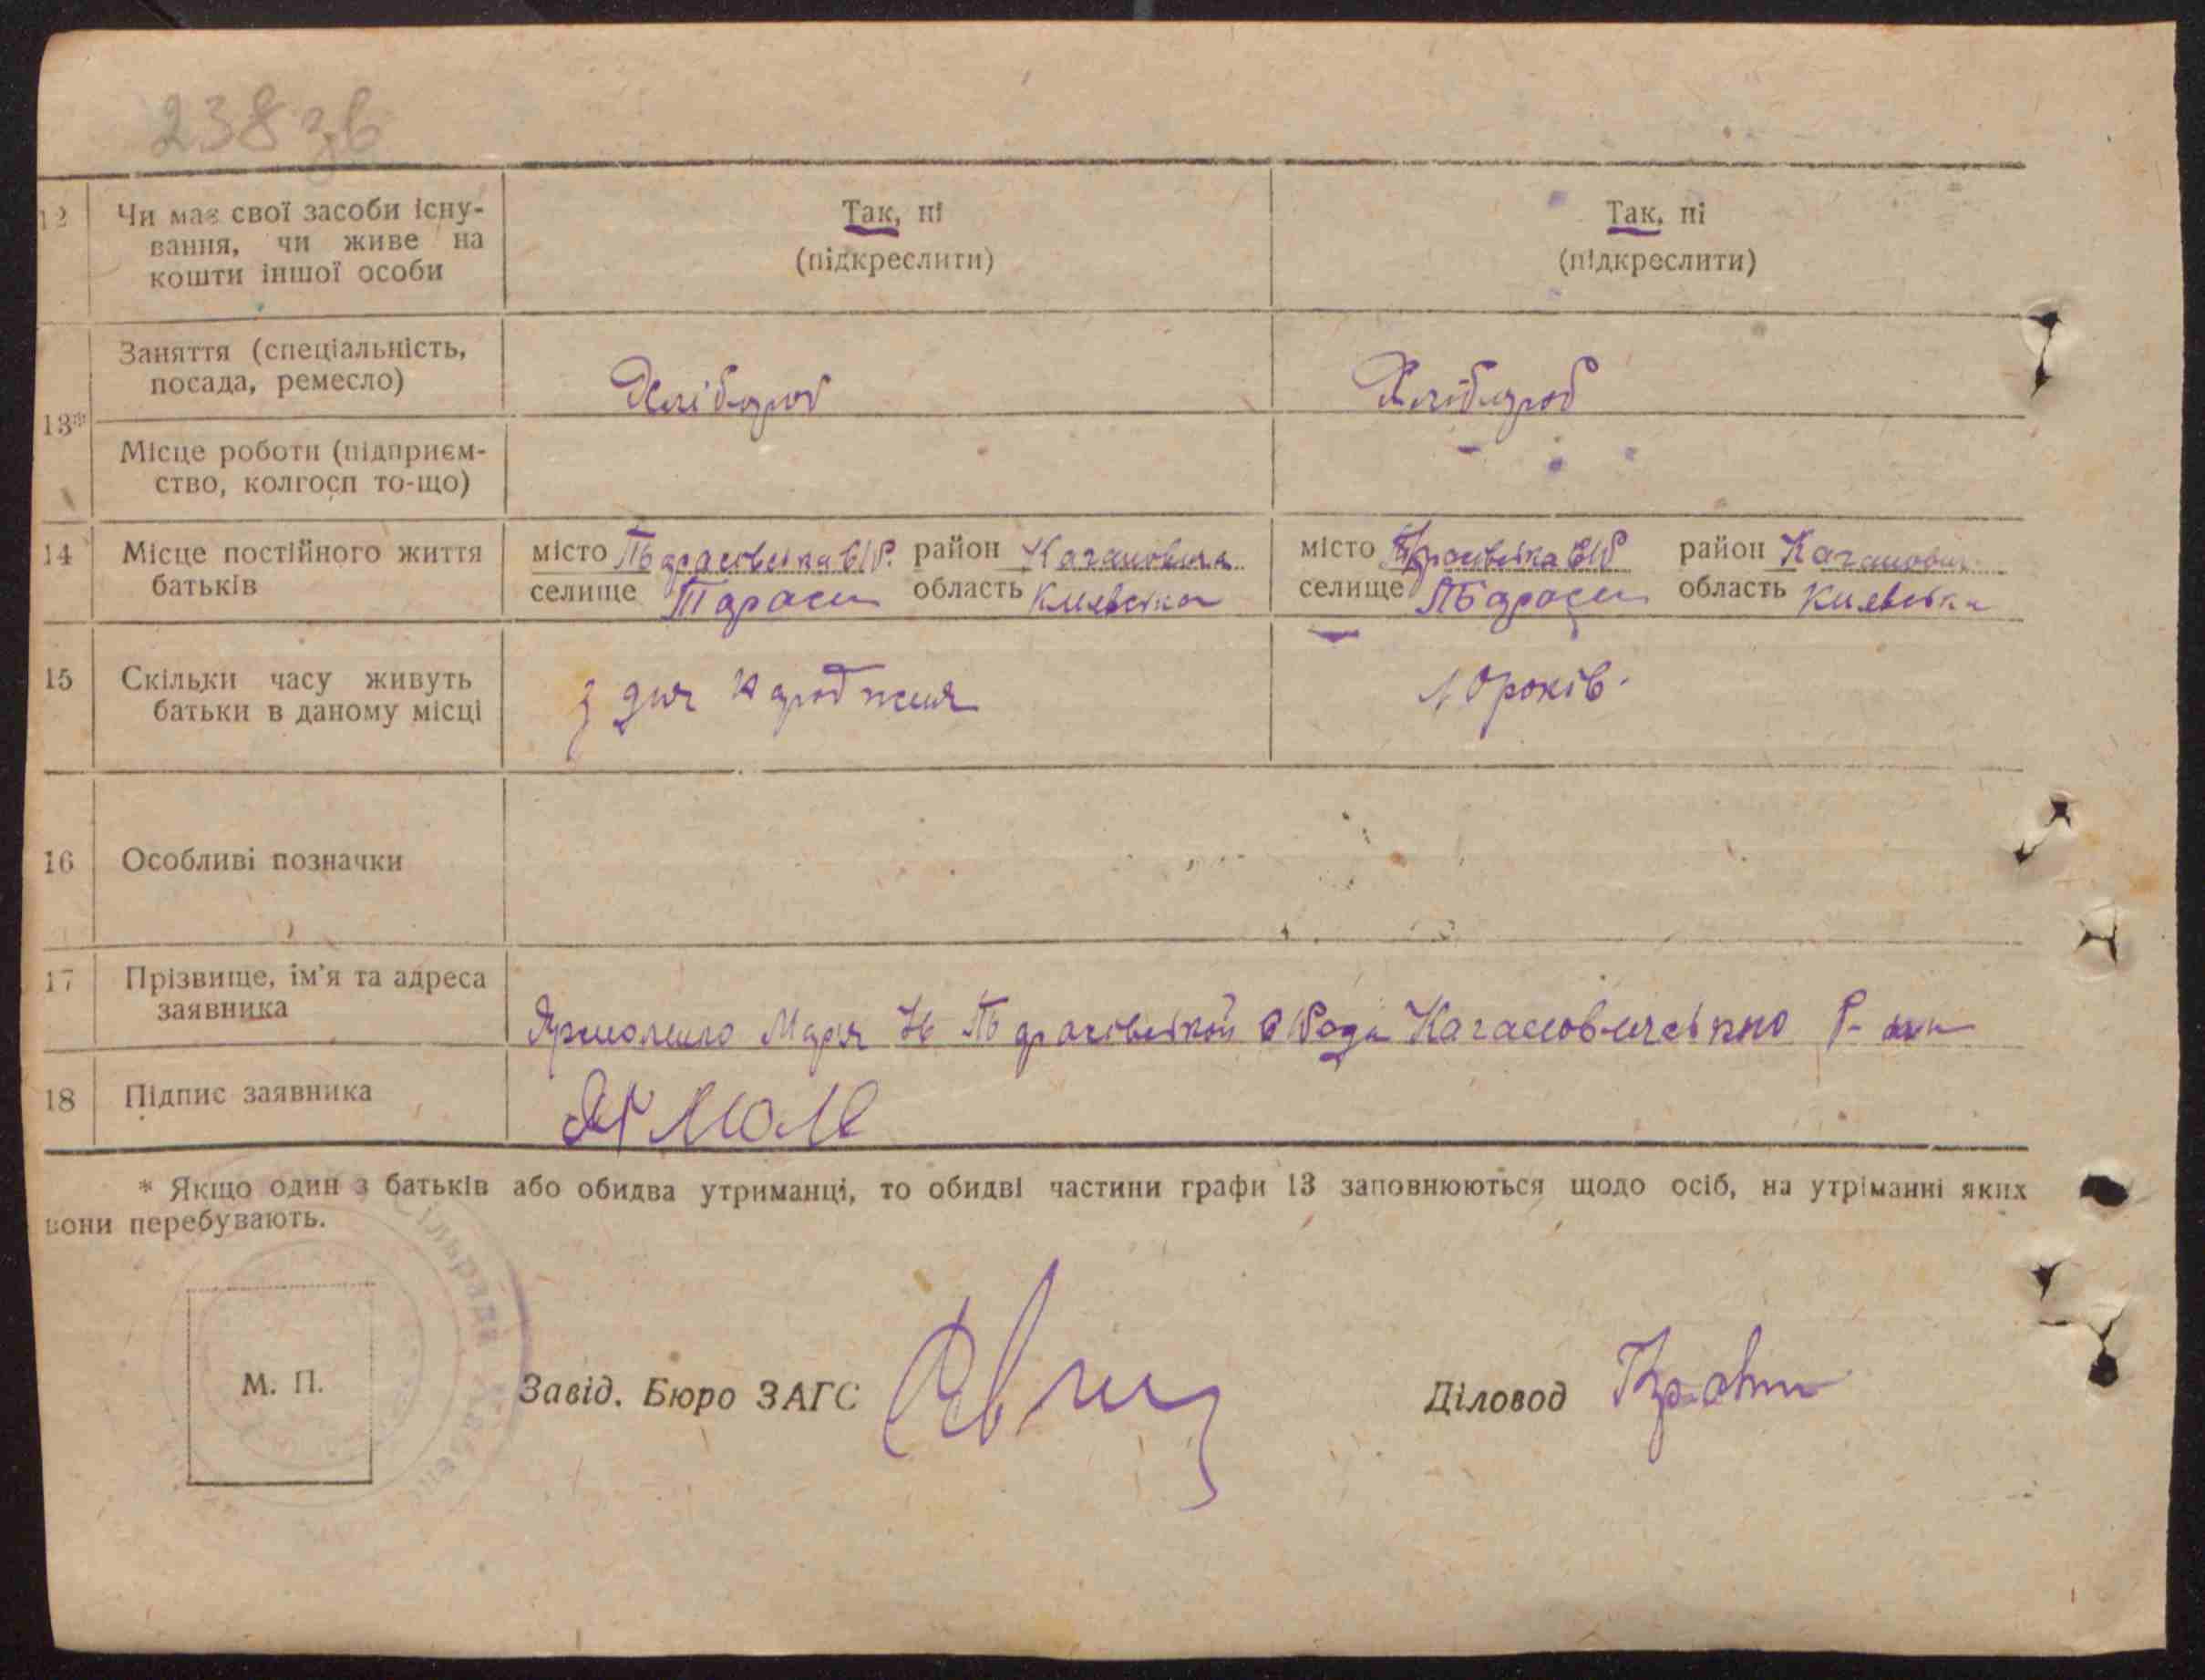 238 зв
12 Чи має свої засоби існу-
вання, чи живе на
кошти іншої особи
Так, ні
(підкреслити)
Так, ні
(підкреслити)
13*
Заняття (спеціальність,
посада, ремесло)
Хлібороб
Хлібороб
Місце роботи (підприєм-
ство, колгосп то-що)
14 Місце постійного життя
батьків
місто район Кагановича
селище Тараси область Киевська
місто район Каганович
селище Тараси область Киевська
15 Скільки часу живуть
батьки в даному місці
з дня народженя
10 років.
16 Особливі позначки
17 Прізвище, ім'я та адреса
заявника
Ярмоленко Марія
18 Підпис заявника
Ярмоле
* Якщо один з батьків або обидва утриманці, то обидві частини графи 13 заповнюються щодо осіб, на утріманні яких
вони перебувають.
сільради
М. П.
Завід. Бюро ЗАГС
Діловод